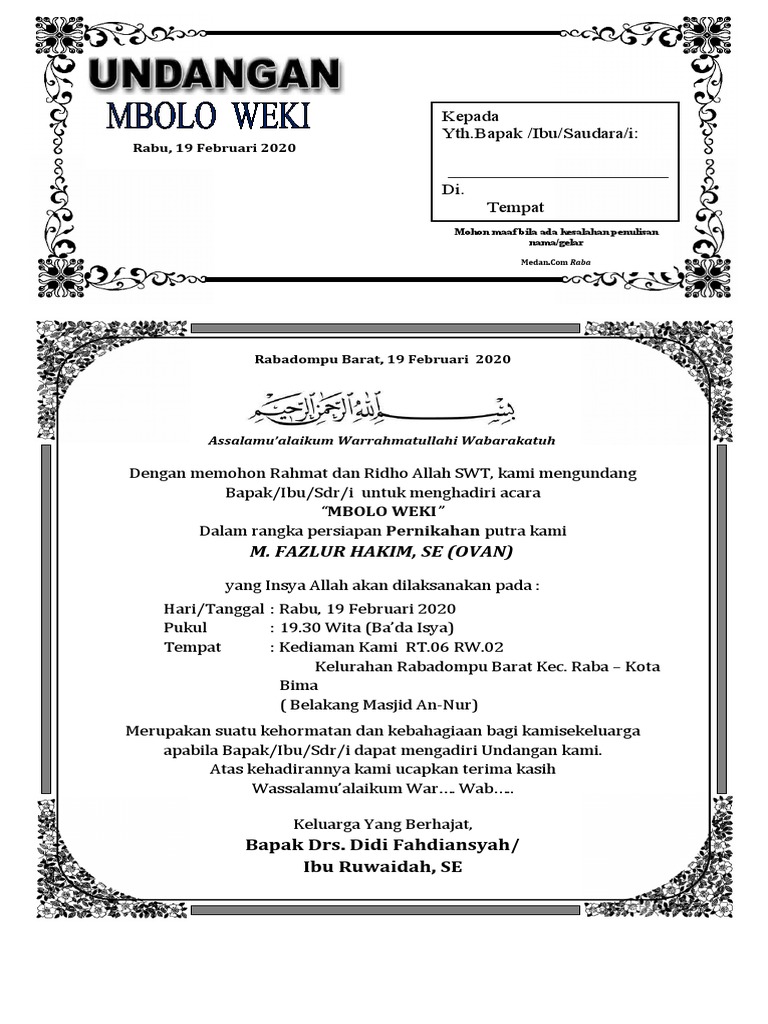 UNDANGAN
MBOLO WEKI
Rabu, 19 Februari 2020
Kepada
Yth.Bapak /Ibu/Saudara/i:
Di.
Tempat
Mohon maaf bila ada kesalahan penulisan
nama/gelar
Medan.Com Raba
Rabadompu Barat, 19 Februari 2020
بِسْمِ اللهِ الرَّحْمٰنِ الرَّحِيْمِ
Assalamu’alaikum Warrahmatullahi Wabarakatuh
Dengan memohon Rahmat dan Ridho Allah SWT, kami mengundang
Bapak/Ibu/Sdr/i untuk menghadiri acara
“MBOLO WEKI”
Dalam rangka persiapan Pernikahan putra kami
M. FAZLUR HAKIM, SE (OVAN)
yang Insya Allah akan dilaksanakan pada :
Hari/Tanggal : Rabu, 19 Februari 2020
Pukul : 19.30 Wita (Ba’da Isya)
Tempat : Kediaman Kami RT.06 RW.02
Kelurahan Rabadompu Barat Kec. Raba – Kota
Bima
( Belakang Masjid An-Nur)
Merupakan suatu kehormatan dan kebahagiaan bagi kamisekeluarga
apabila Bapak/Ibu/Sdr/i dapat mengadiri Undangan kami.
Atas kehadirannya kami ucapkan terima kasih
Wassalamu’alaikum War…. Wab…..
Keluarga Yang Berhajat,
Bapak Drs. Didi Fahdiansyah/
Ibu Ruwaidah, SE